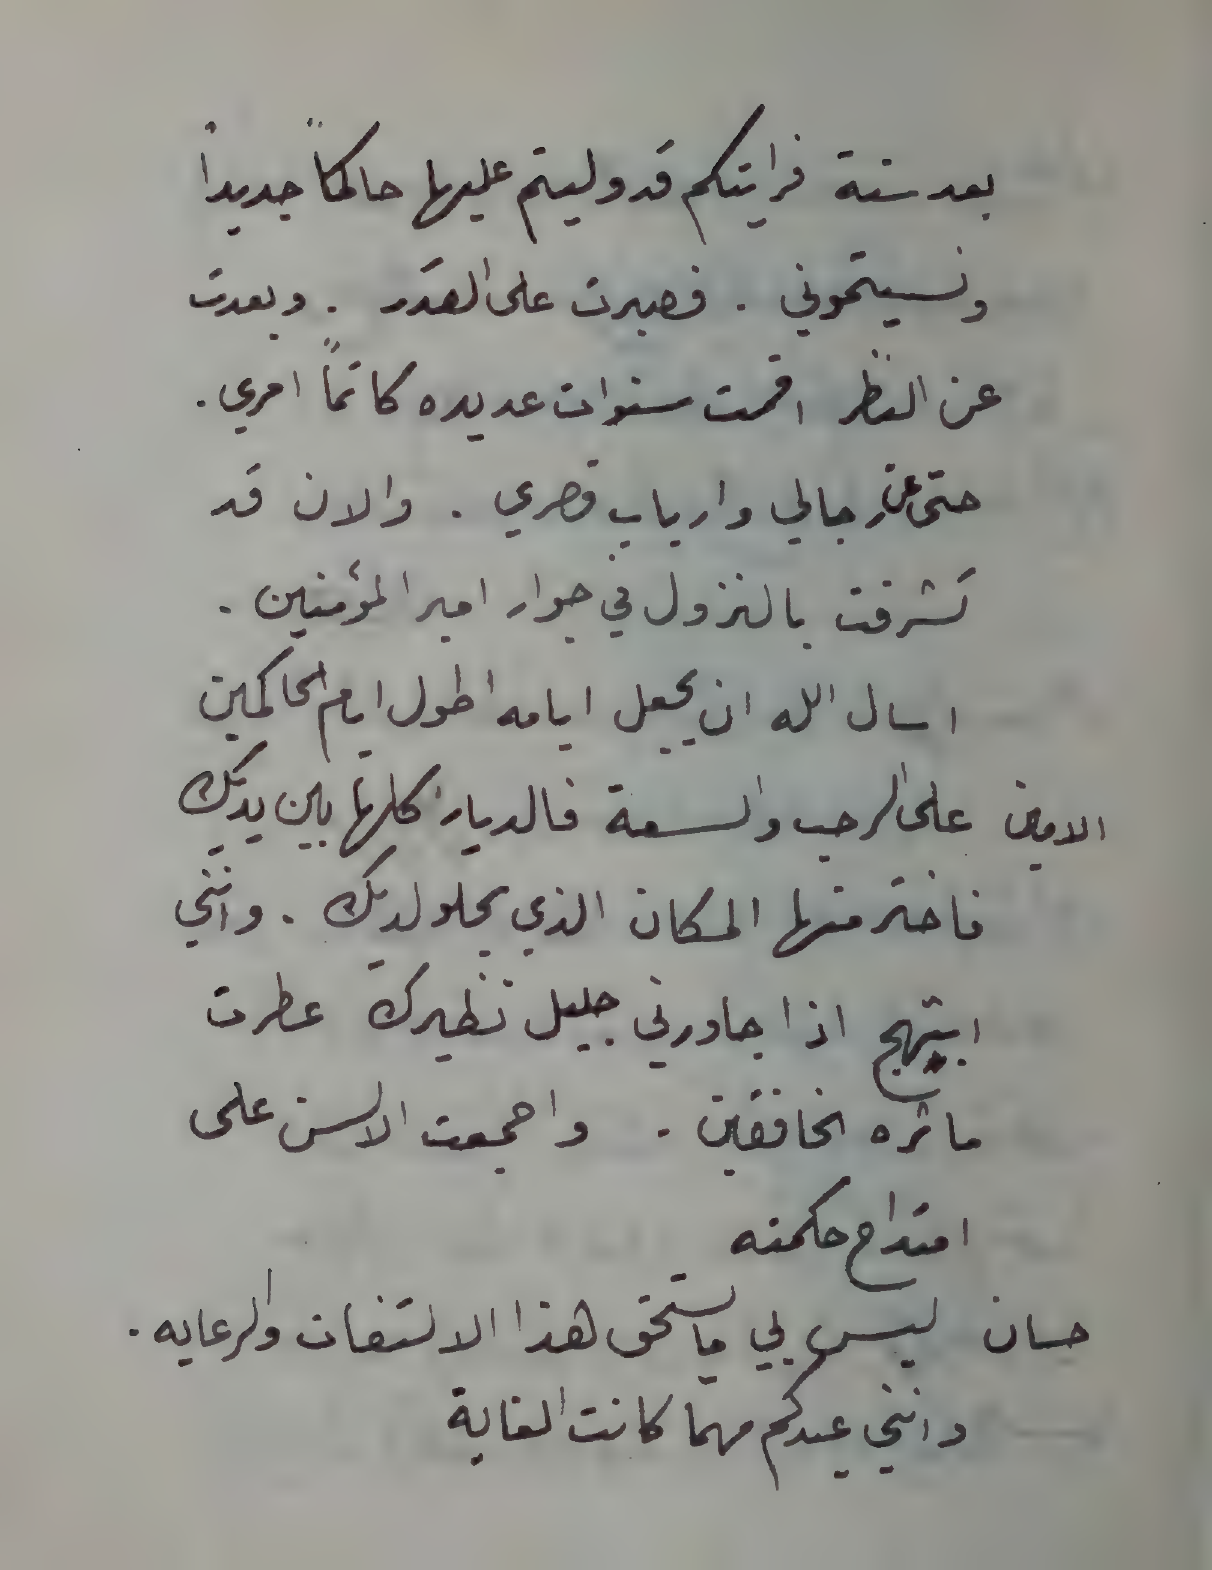 بعد سنة فرايتكم قد وليتم عليها حاكماً جديداً
ونسيتموني . فصبرت على القدر . وبعدت
عن النظر اقمت سنوات عديده كاتماً امري .
حتى عن رجالي وارباب قصري . والان قد
تشرفت بالنزول في جوار امير المؤمنين .
اسال الله ان يجعل ايامه اطول ايام الحاكمين
الامين على الرحب والسعة فالديار كلها بين يديك
فاختر منها المكان الذي يحلو لديك . وانني
ابتهج اذا جاورني جليل نظيرك عطرت
ماثره الخافقين . واجمعت الالسن على
امتداح حكمته
حسان ليس بي ما يستحق هذا الالتفات والرعايه .
وانني عبدكم مهما كانت الغاية